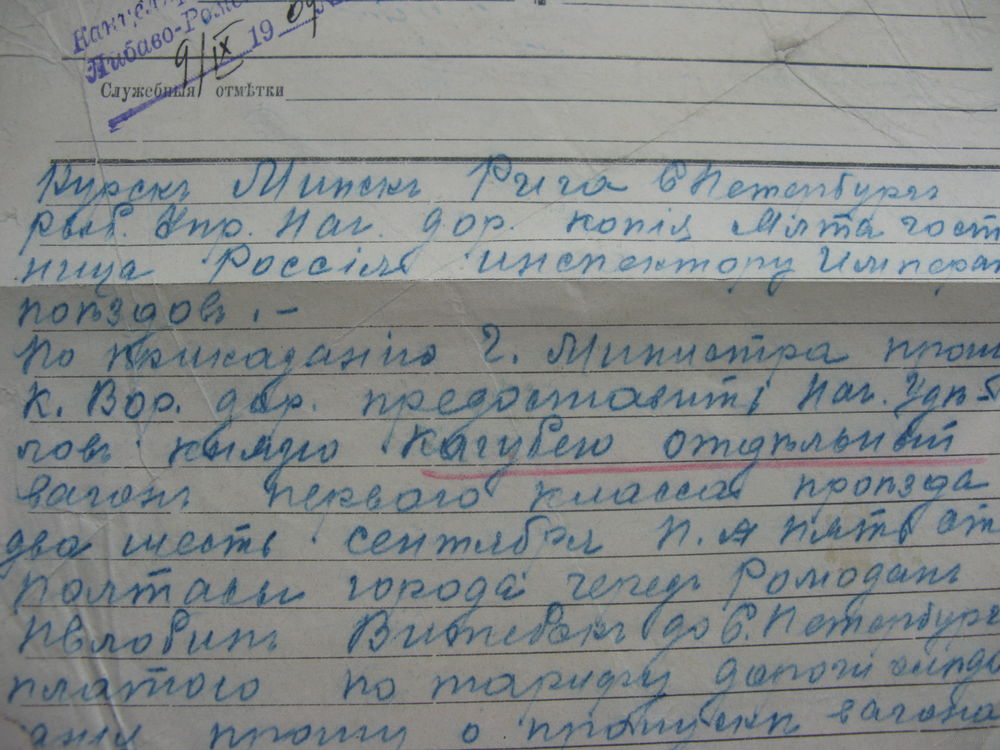 Канцеляр
Либаво-Ром
9/IX 1909
Служебныя отмѣтки
Курскъ Минскъ Рига С Петербургъ
Упр. Нач. дор. копія Ялта гост
ница Россія инспектору Импера
поѣздовъ. —
По приказанію Г. Министра прош
К. Вор. дор. предоставить Нач. Удѣ
ловъ князю Кочубею отдѣльный
вагонъ перваго класса проѣзда
два шесть сентября п. пять от
Полтавы города черезъ Ромоданъ
Жлобинъ Витебскъ до С. Петербурга
платою по тарифу
прошу о пропускѣ вагона